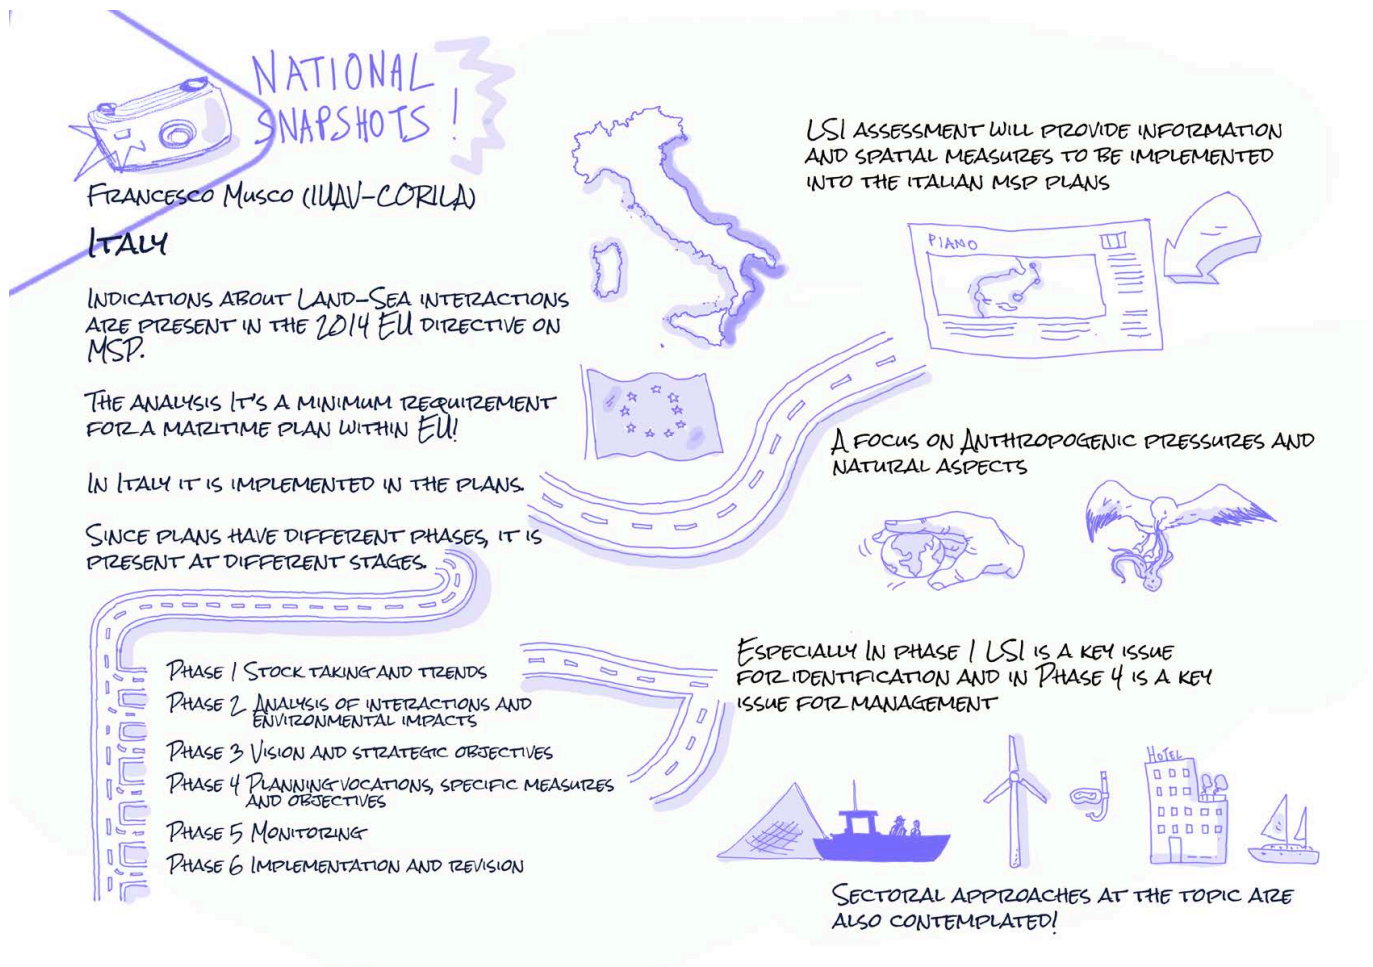 NATIONAL
SNAPSHOTS!
FRANCESCO MUSCO (IUAV-CORILA)
ITALY
INDICATIONS ABOUT LAND-SEA INTERACTIONS
ARE PRESENT IN THE 2014 EU DIRECTIVE ON
MSP.
THE ANALYSIS IT'S A MINIMUM REQUIREMENT
FOR A MARITIME PLAN WITHIN EU!
IN ITALY IT IS IMPLEMENTED IN THE PLANS.
SINCE PLANS HAVE DIFFERENT PHASES, IT IS
PRESENT AT DIFFERENT STAGES.
PHASE 1 STOCK TAKING AND TRENDS
PHASE 2 ANALYSIS OF INTERACTIONS AND
ENVIRONMENTAL IMPACTS
PHASE 3 VISION AND STRATEGIC OBJECTIVES
PHASE 4 PLANNING VOCATIONS, SPECIFIC MEASURES
AND OBJECTIVES
PHASE 5 MONITORING
PHASE 6 IMPLEMENTATION AND REVISION
LSI ASSESSMENT WILL PROVIDE INFORMATION
AND SPATIAL MEASURES TO BE IMPLEMENTED
INTO THE ITALIAN MSP PLANS
PIANO
A FOCUS ON ANTHROPOGENIC PRESSURES AND
NATURAL ASPECTS
ESPECIALLY IN PHASE 1 LSI IS A KEY ISSUE
FOR IDENTIFICATION AND IN PHASE 4 IS A KEY
ISSUE FOR MANAGEMENT
HOTEL
SECTORAL APPROACHES AT THE TOPIC ARE
ALSO CONTEMPLATED!